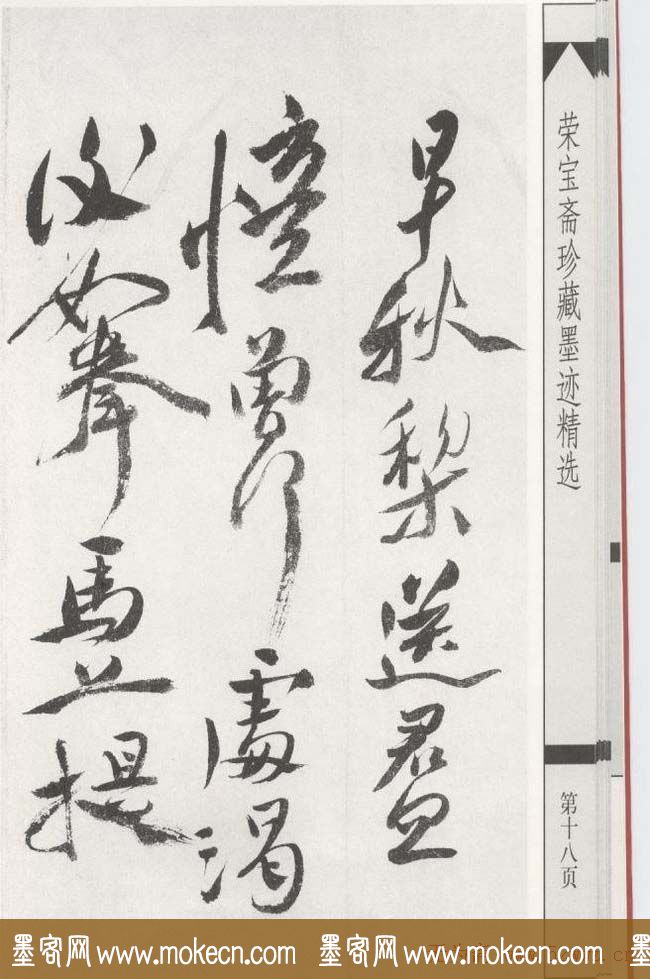 荣宝斋珍藏墨迹精选
第十八页
早秋梨送君
憶曾行處渴
如拳馬上提
墨客网 www.mokecn.com 墨客网 www.mokecn.com